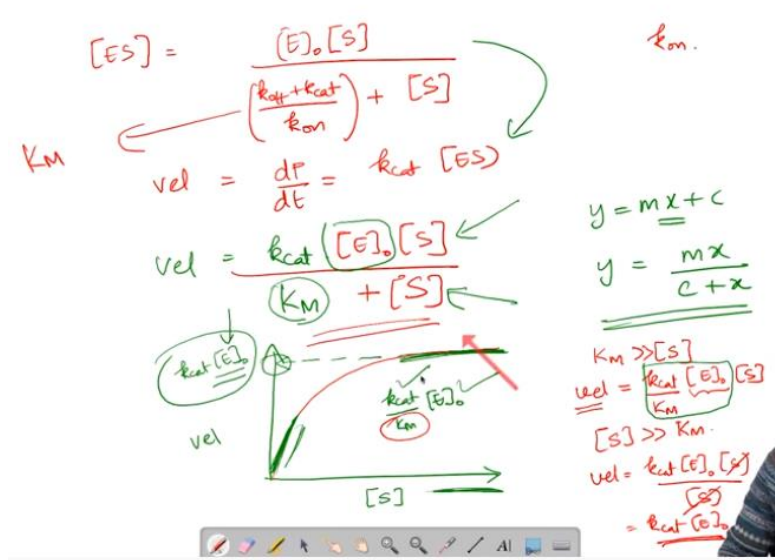 [ES] = [E]₀[S] / ((koff + kcat / kon) + [S])
kon.
KM
vel = dP/dt = kcat [ES]
vel = kcat [E]₀ [S] / (KM + [S])
y = mx + c
y = mx / (c + x)
kcat [E]₀
vel
kcat/KM [E]₀
[S]
KM >> [S]
vel = kcat [E]₀ / KM [S]
[S] >> KM.
vel = kcat [E]₀ [S] / [S]
= kcat [E]₀
A